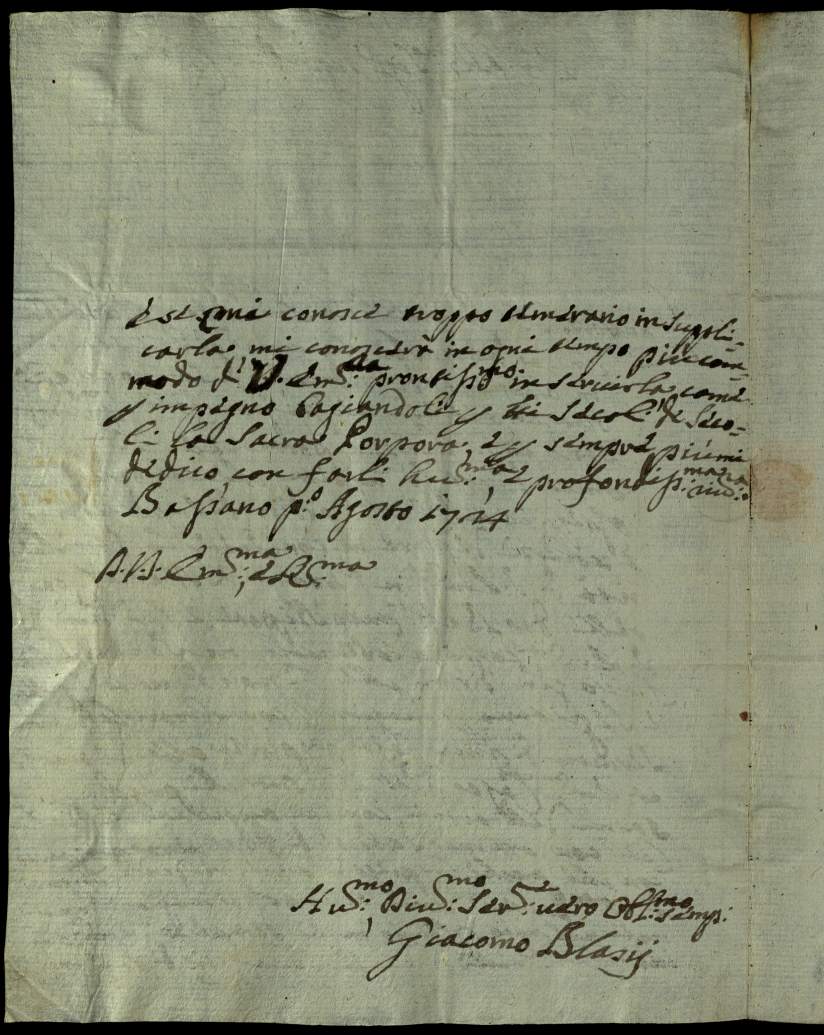 è se mi conosce troppo temerario in suppli-
carla, mi conoscerà in ogni tempo più com-
modo di V. Em:za prontiss:mo in servirla come
p impegno bagiandoli p li secoli de seco-
li la Sacra Porpora, e p sempre più mi
dedico con farli hu:ma e profondiss:ma riu:za
Bassano p:o Agosto 1724
D.V. Em:ma, e R:ma
Hu:mo Diu:mo Ser:e uero Obl:mo semp:
Giacomo Blasij